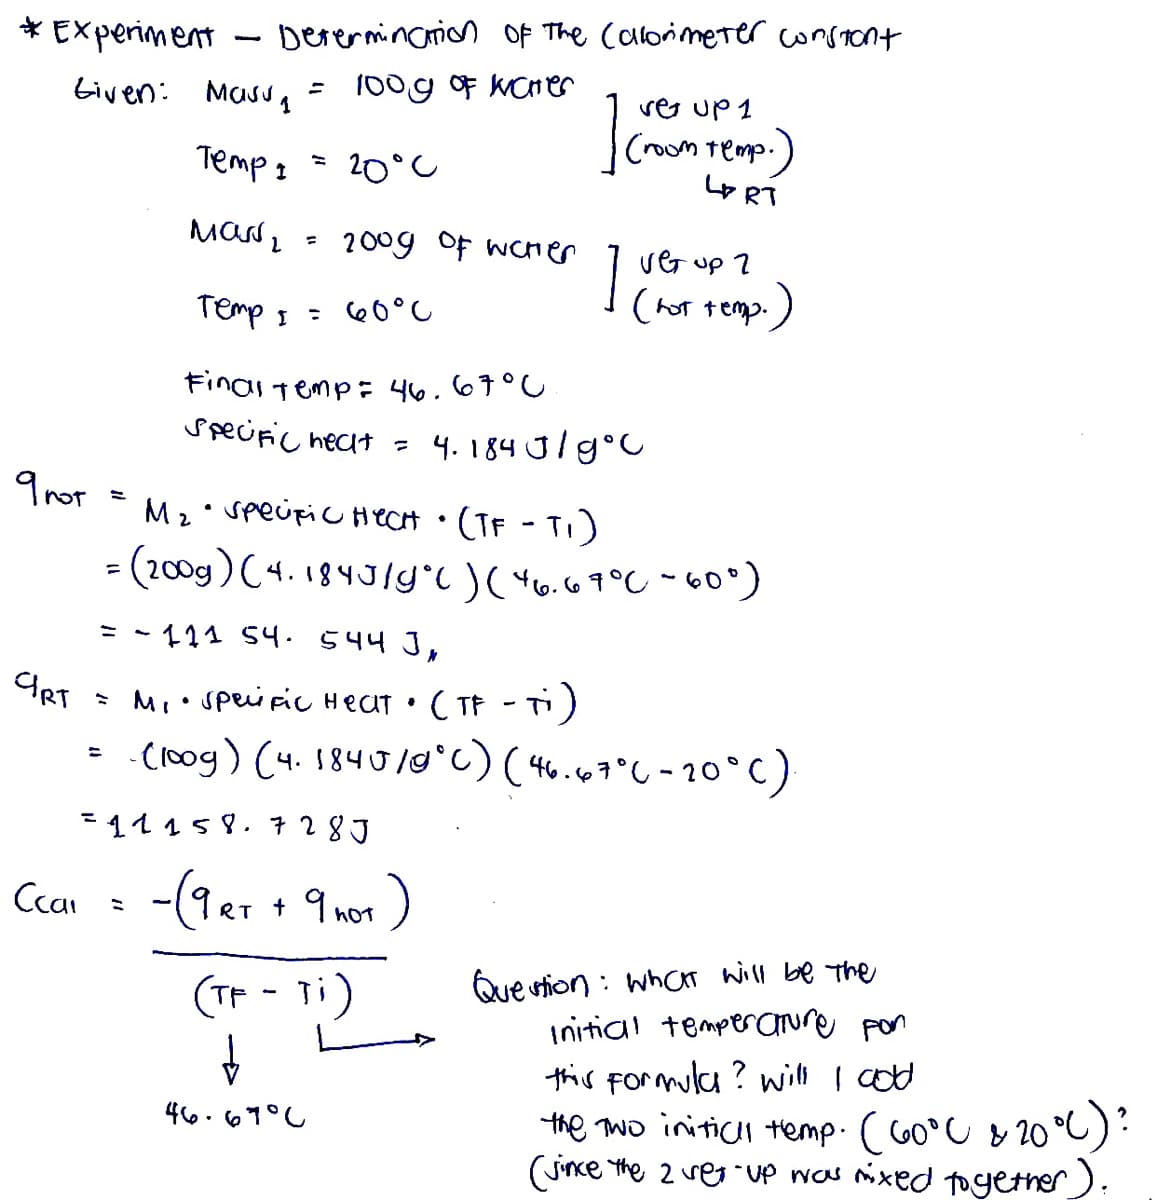 * Experiment – Determination of the Calorimeter constant
Given: Mass₁ = 100g of water
] set up 1
(room temp.)
↳ RT
Temp I = 20°C
Mass₂ = 200g of water
] set up 2
(hot temp.)
Temp I = 60°C
Final temp = 46.67°C
Specific heat = 4.184 J/g°C
qhot = M₂ • specific Heat • (TF - Ti)
= (200g)(4.184J/g°C)(46.67°C - 60°)
= - 111 54. 544 J
qRT = M₁ • specific Heat • (TF - Ti)
= (100g)(4.184J/g°C)(46.67°C - 20°C)
= 11158.728J
Ccal = -(qRT + qhot)
(TF - Ti)
46.67°C
Question: what will be the
initial temperature for
this formula? will I add
the two initial temp. (60°C & 20°C)?
(since the 2 set-up was mixed together).